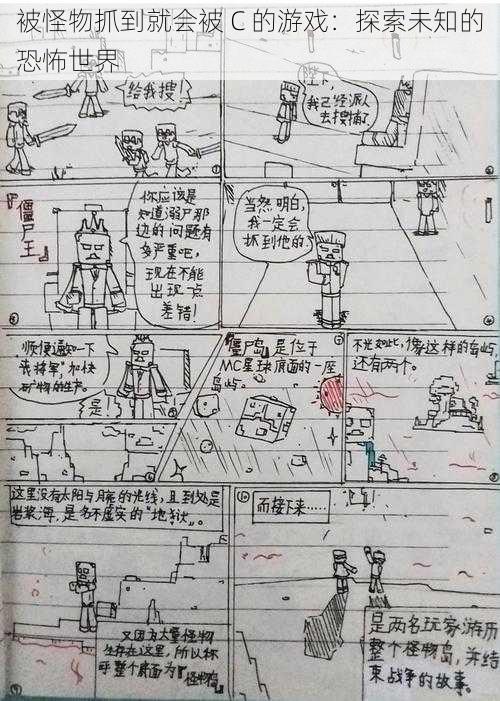 被怪物抓到就会被 C 的游戏：探索未知的
恐怖世界
给我搜
陛下，
我已经派人
去搜捕了
『僵尸王』
你应该是
知道溺尸那
边的问题有
多严重吧，
现在不能
出现一点
差错！
当然明白，
我一定会
抓到他的。
顺便通知一下
将军"加快
矿物的生产。
是！
"僵尸岛"是位于
MC星球底面的一座
岛屿。
不光如此，像这样的岛屿
还有两个。
这里没有太阳与月亮的光线，且到处是
岩浆海，是名不虚实的"地狱"。
又因为大量怪物
生存在这里，所以称
呼整个底面为『怪物岛』
而接下来……
是两名玩家游历
整个怪物岛，并结
束战争的故事。